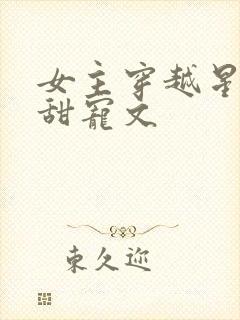 女主穿越星
甜宠文
東久迩